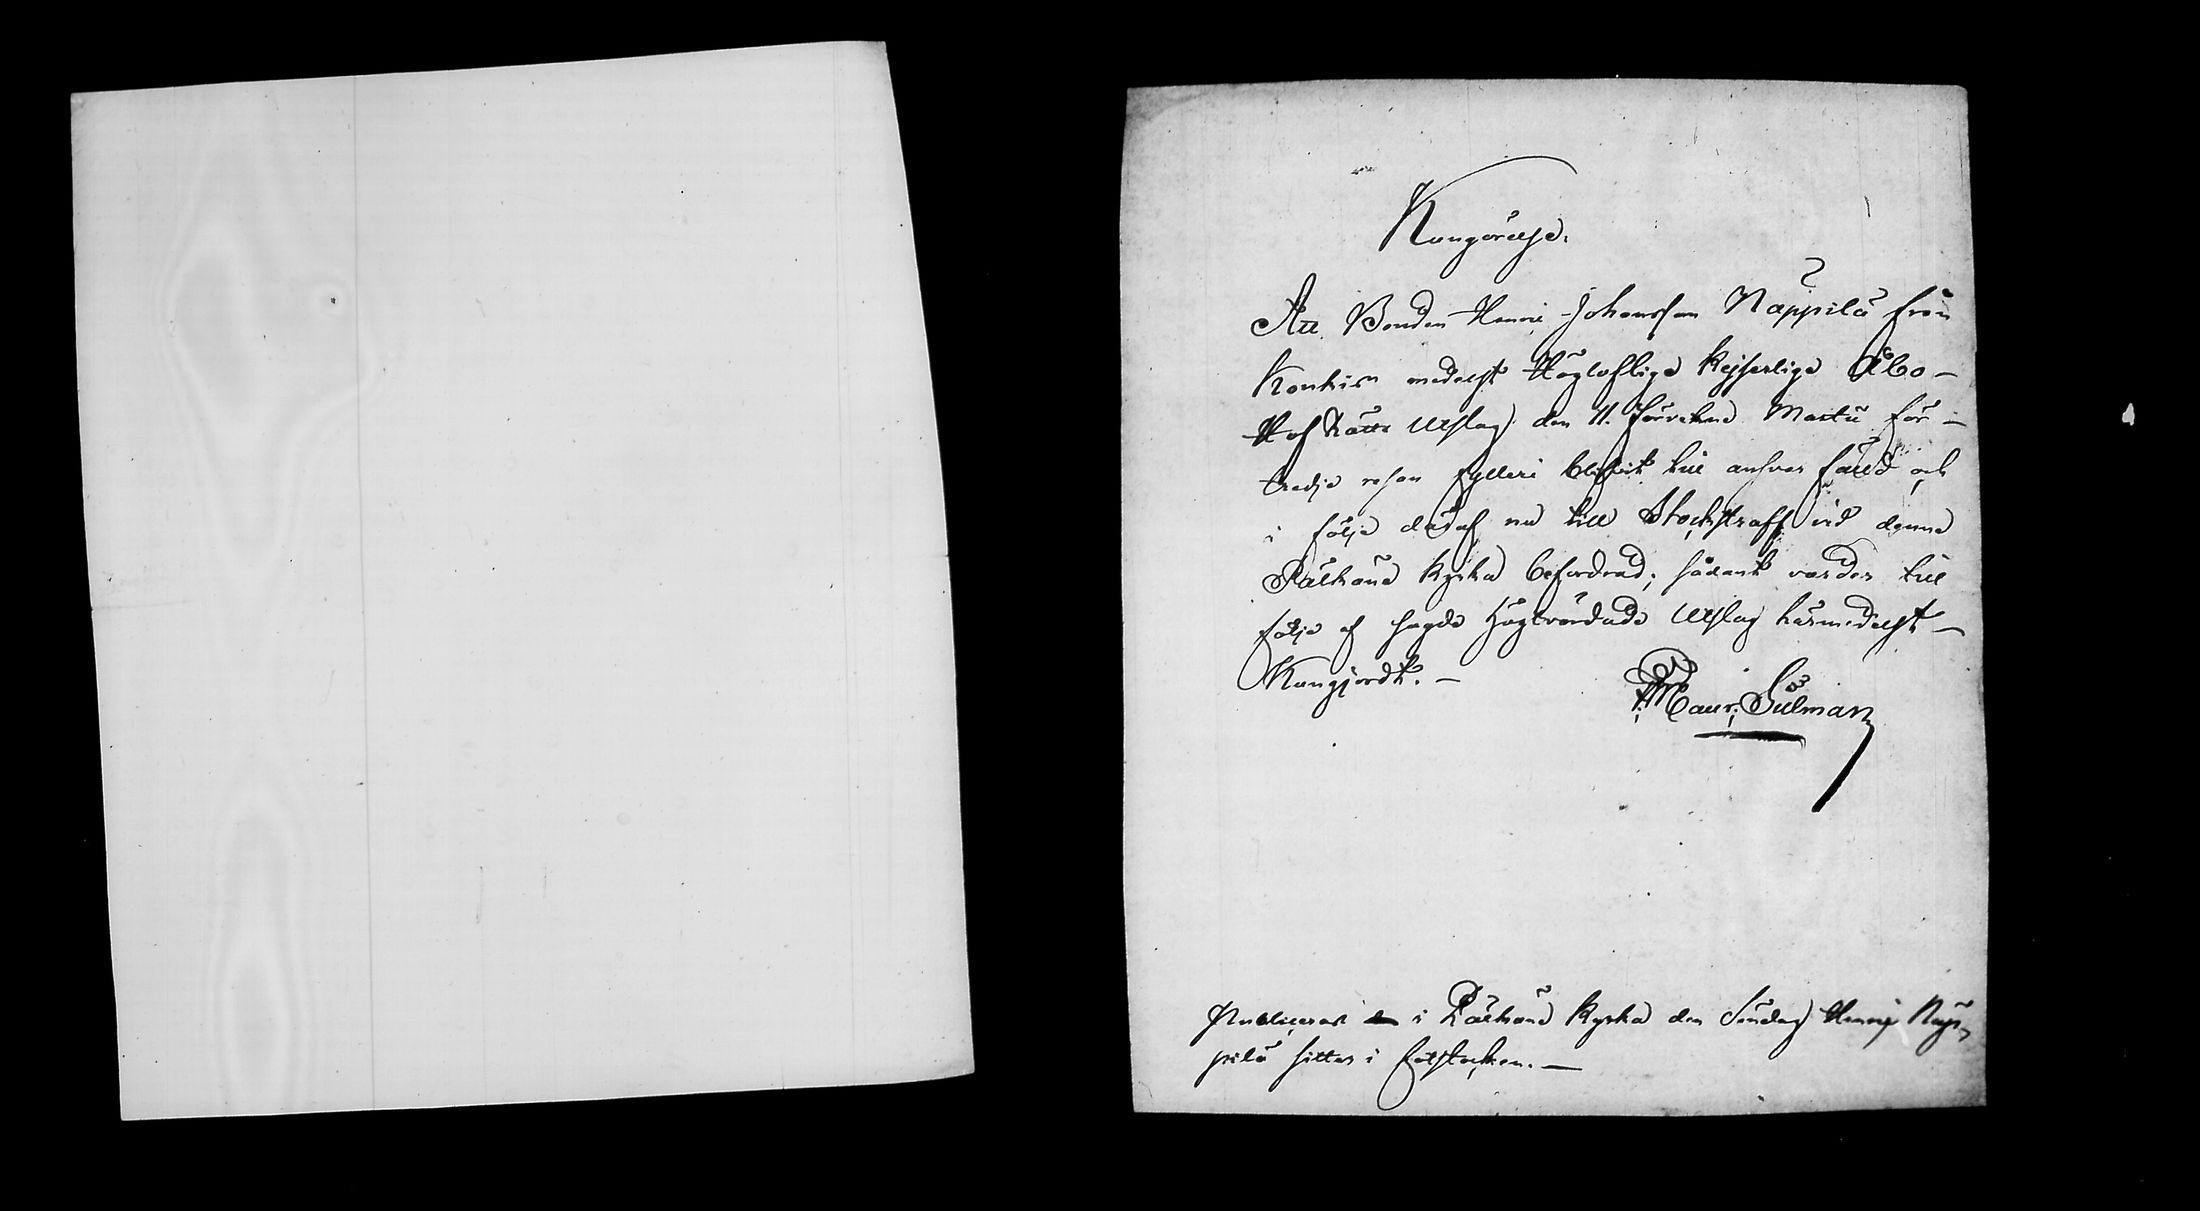 Kungörelse.
Att Bonden Henric Johansson Näppilä från
Konkis medelst Högloflige Kejserlige Åbo-
Hof Rätts Utslag den 11. förrekne Martii för-
tredje resan fylleri blifvit till ansvar fälld och
i följe däraf nu till Stockstraff vid denne
Pälkäne Kyrka befordrad; sådant varder till
följe af sagde Högtvördade Utslag härmedelst-
Kungjordt.-
Maur. Silman
Publiceras i Pälkäne Kyrka den Söndag Henric Näp-
pilä sitter i fotstocken.-